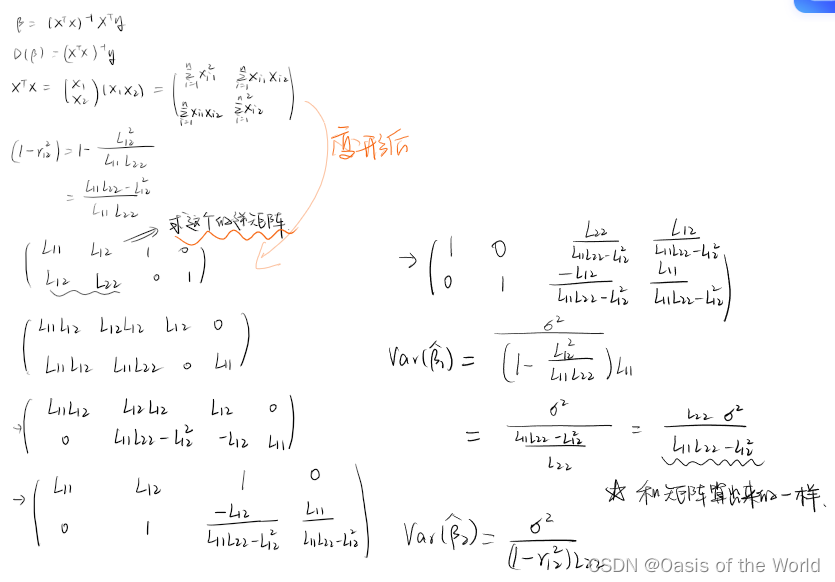 β = (XᵀX)⁻¹Xᵀy
D(β) = (XᵀX)⁻¹y
XᵀX = (X₁ X₂)(X₁ X₂) = (Σᵢ₌₁ⁿ Xᵢ₁² Σᵢ₌₁ⁿ Xᵢ₁Xᵢ₂
Σᵢ₌₁ⁿ Xᵢ₁Xᵢ₂ Σᵢ₌₁ⁿ Xᵢ₂²)
变形后
(1-r₁₂²) = 1 - L₁₂² / L₁₁L₂₂
= (L₁₁L₂₂ - L₁₂²) / L₁₁L₂₂
求这个的逆矩阵
(L₁₁ L₁₂ 1 0
L₁₂ L₂₂ 0 1)
(L₁₁L₁₂ L₁₂L₁₂ L₁₂ 0
L₁₁L₁₂ L₁₁L₂₂ 0 L₁₁)
→ (L₁₁L₁₂ L₁₂L₁₂ L₁₂ 0
0 L₁₁L₂₂-L₁₂² -L₁₂ L₁₁)
→ (L₁₁ L₁₂ 1 0
0 1 -L₁₂/(L₁₁L₂₂-L₁₂²) L₁₁/(L₁₁L₂₂-L₁₂²))
→ (1 0 L₂₂/(L₁₁L₂₂-L₁₂²) L₁₂/(L₁₁L₂₂-L₁₂²)
0 1 -L₁₂/(L₁₁L₂₂-L₁₂²) L₁₁/(L₁₁L₂₂-L₁₂²))
Var(β̂₁) = σ² / (1 - L₁₂²/L₁₁L₂₂)L₁₁
= σ² / ((L₁₁L₂₂-L₁₂²)/L₂₂) = L₂₂σ² / (L₁₁L₂₂-L₁₂²)
☆ 和矩阵算出来的一样.
Var(β̂₂) = σ² / (1-r₁₂²)L₂₂
CSDN @Oasis of the World